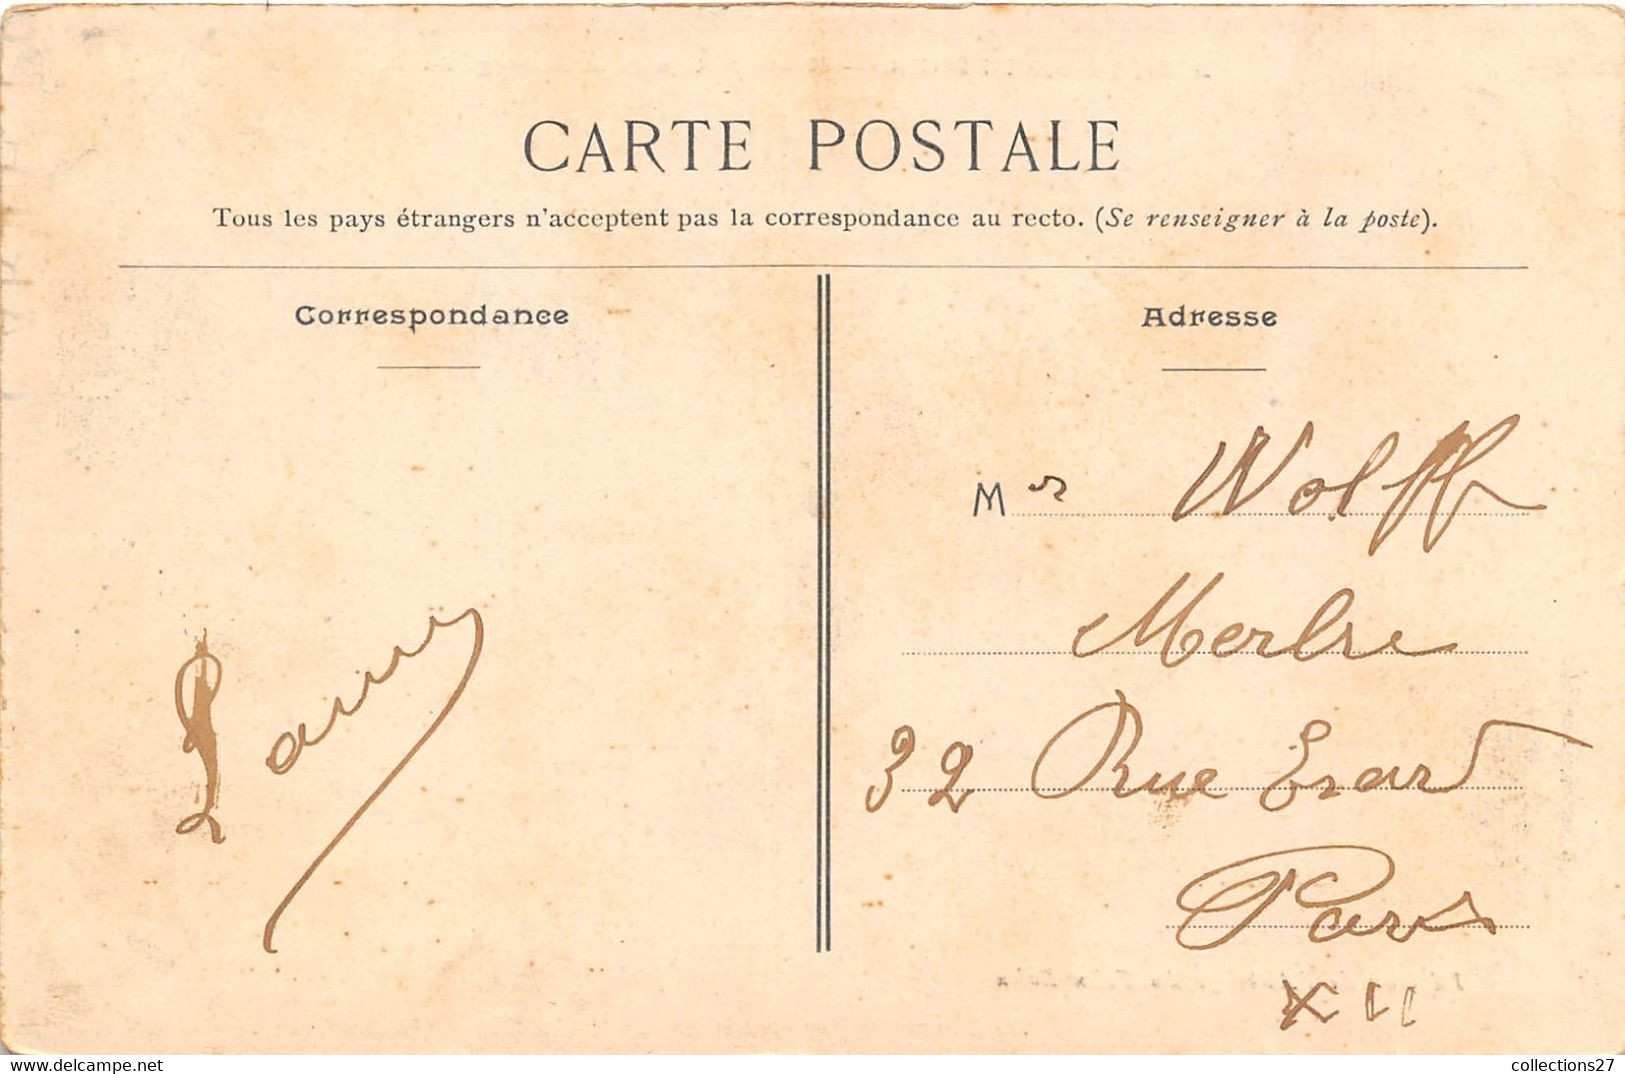 CARTE POSTALE
Tous les pays étrangers n'acceptent pas la correspondance au recto. (Se renseigner à la poste).
Correspondance
Lamy
Adresse
Mr Wolff
32 Rue Erard
Paris
XII
www.delcampe.net
collections27